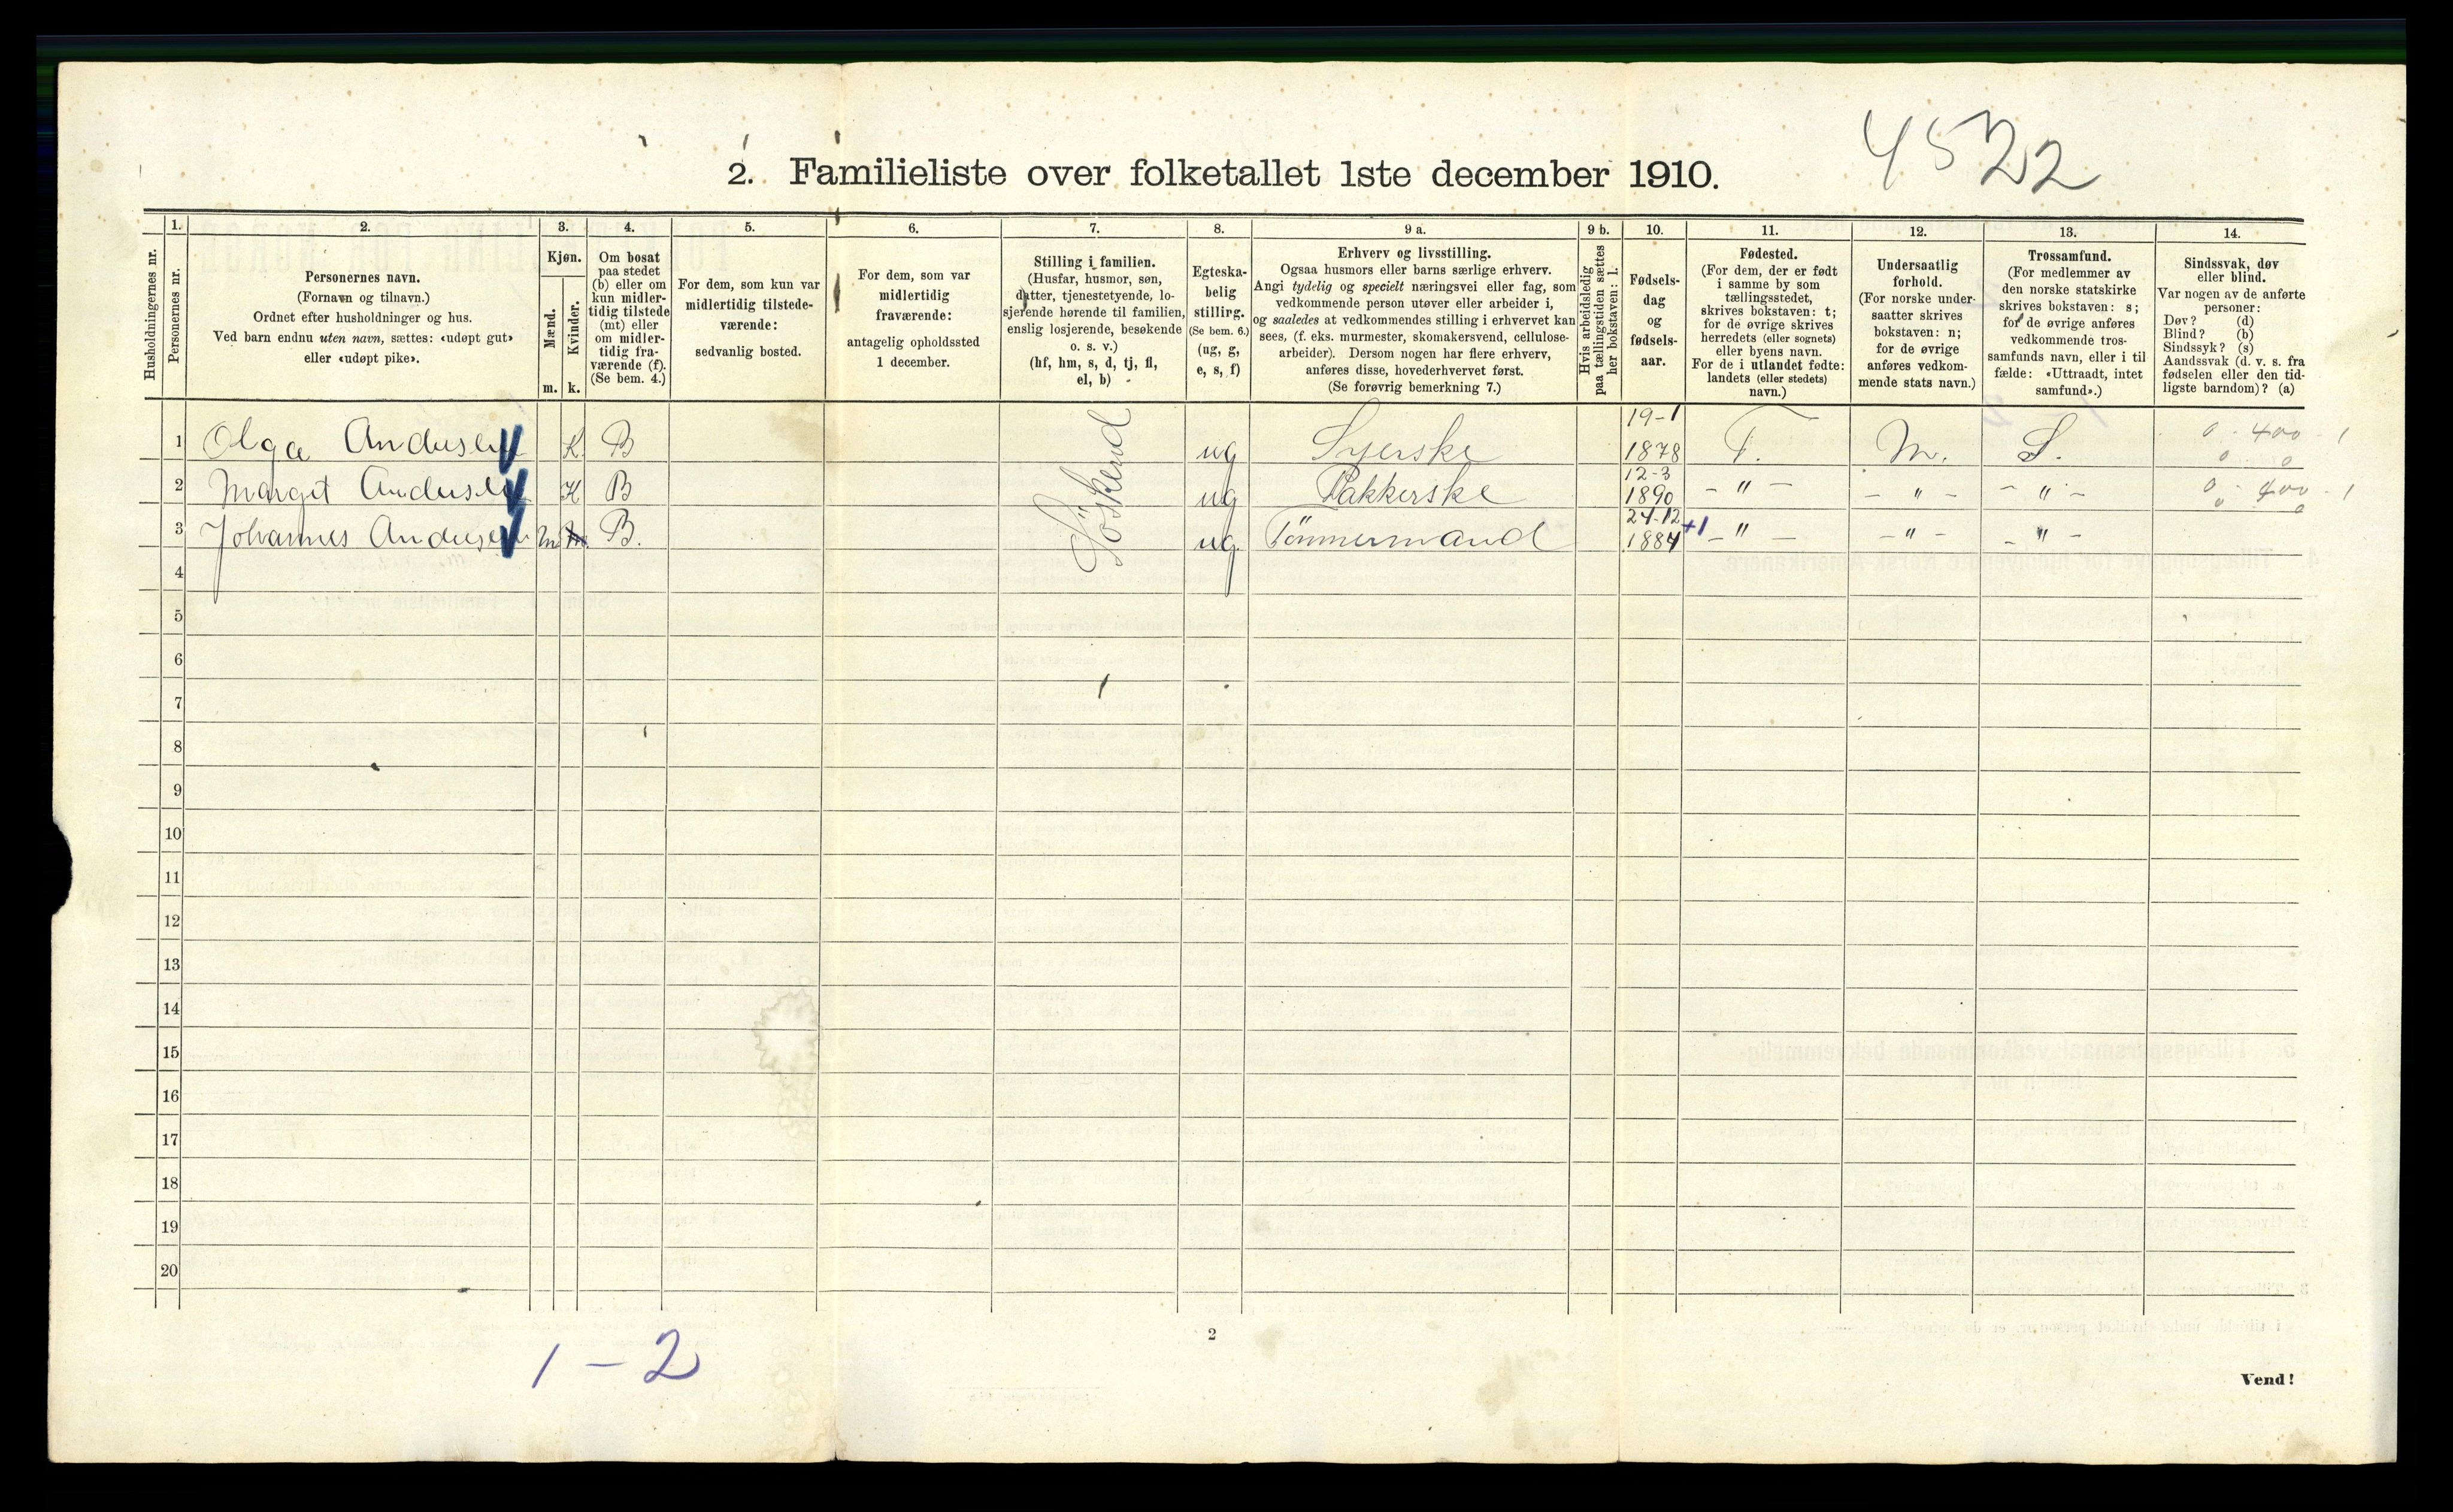 4522
2. Familieliste over folketallet 1ste december 1910.
Husholdningernes nr.
1.
Personernes nr.
2.
Personernes navn.
(Fornavn og tilnavn.)
Ordnet efter husholdninger og hus.
Ved barn endnu uten navn, sættes: «udøpt gut»
eller «udøpt pike».
3.
Kjøn.
Mænd.
m.
Kvinder.
k.
4.
Om bosat
paa stedet
(b) eller om
kun midler-
tidig tilstede
(mt) eller
om midler-
tidig fra-
værende (f).
(Se bem. 4.)
5.
For dem, som kun var
midlertidig tilstede-
værende:
sedvanlig bosted.
6.
For dem, som var
midlertidig
fraværende:
antagelig opholdssted
1 december.
7.
Stilling i familien.
(Husfar, husmor, søn,
datter, tjenestetyende, lo-
sjerende hørende til familien,
enslig losjerende, besøkende
o. s. v.)
(hf, hm, s, d, tj, fl,
el, b)
8.
Egteska-
belig
stilling.
(Se bem. 6.)
(ug, g,
e, s, f)
9 a.
Erhverv og livsstilling.
Ogsaa husmors eller barns særlige erhverv.
Angi tydelig og specielt næringsvei eller fag, som
vedkommende person utøver eller arbeider i,
og saaledes at vedkommendes stilling i erhvervet kan
sees, (f. eks. murmester, skomakersvend, cellulose-
arbeider). Dersom nogen har flere erhverv,
anføres disse, hovederhvervet først.
(Se forøvrig bemerkning 7.)
9 b.
Hvis arbeidsledig
paa tællingstiden sættes
her bokstaven: l.
10.
Fødsels-
dag
og
fødsels-
aar.
11.
Fødested.
(For dem, der er født
i samme by som
tællingsstedet,
skrives bokstaven: t;
for de øvrige skrives
herredets (eller sognets)
eller byens navn.
For de i utlandet fødte:
landets (eller stedets)
navn.)
12.
Undersaatlig
forhold.
(For norske under-
saatter skrives
bokstaven: n;
for de øvrige
anføres vedkom-
mende stats navn.)
13.
Trossamfund.
(For medlemmer av
den norske statskirke
skrives bokstaven: s;
for de øvrige anføres
vedkommende tros-
samfunds navn, eller i til
fælde: «Uttraadt, intet
samfund».)
14.
Sindssvak, døv
eller blind.
Var nogen av de anførte
personer:
Døv? (d)
Blind? (b)
Sindssyk? (s)
Aandssvak (d. v. s. fra
fødselen eller den tid-
ligste barndom)? (a)
1 Olga Andersen K B Söskend ug Syerske 19-1 1878 T. N. S. 0 - 400 - 1
2 Margit Andersen K B ug Pakkerske 12-3 1890 - " - - " - - " - 0 - 400 - 1
3 Johannes Andersen m B. ug. Tömmermand 24-12 1884 +1 - " - - " - - " -
4
5
6
7
8
9
10
11
12
13
14
15
16
17
18
19
20
1 - 2
2
Vend!